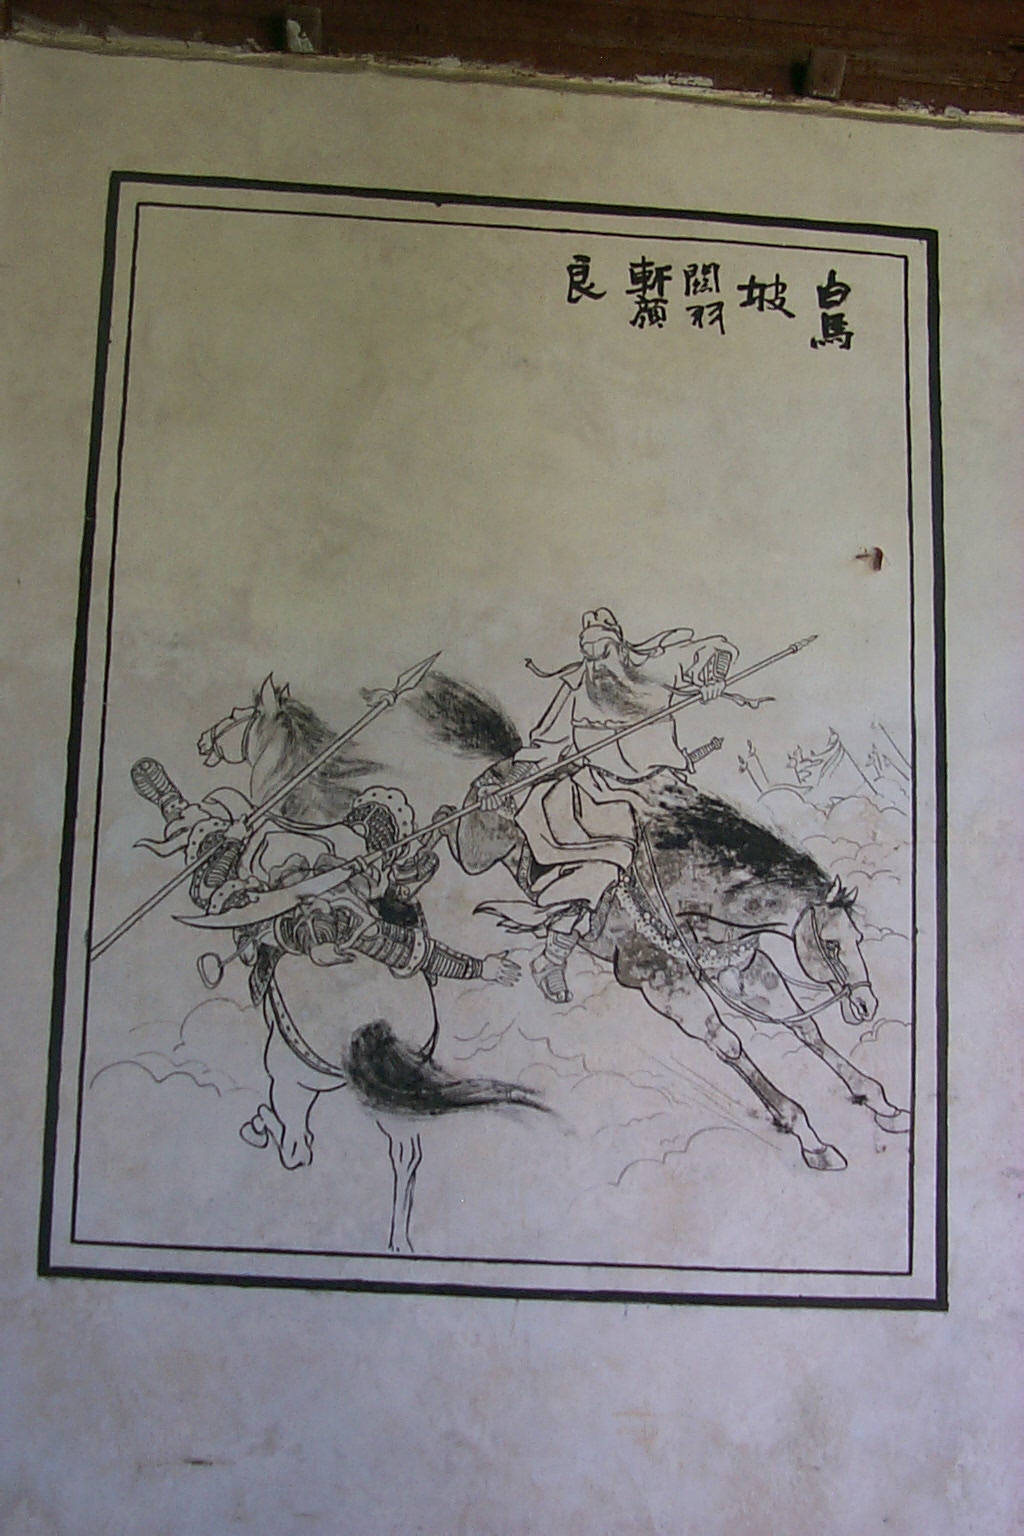 白馬
坡
關羽
斬顏
良